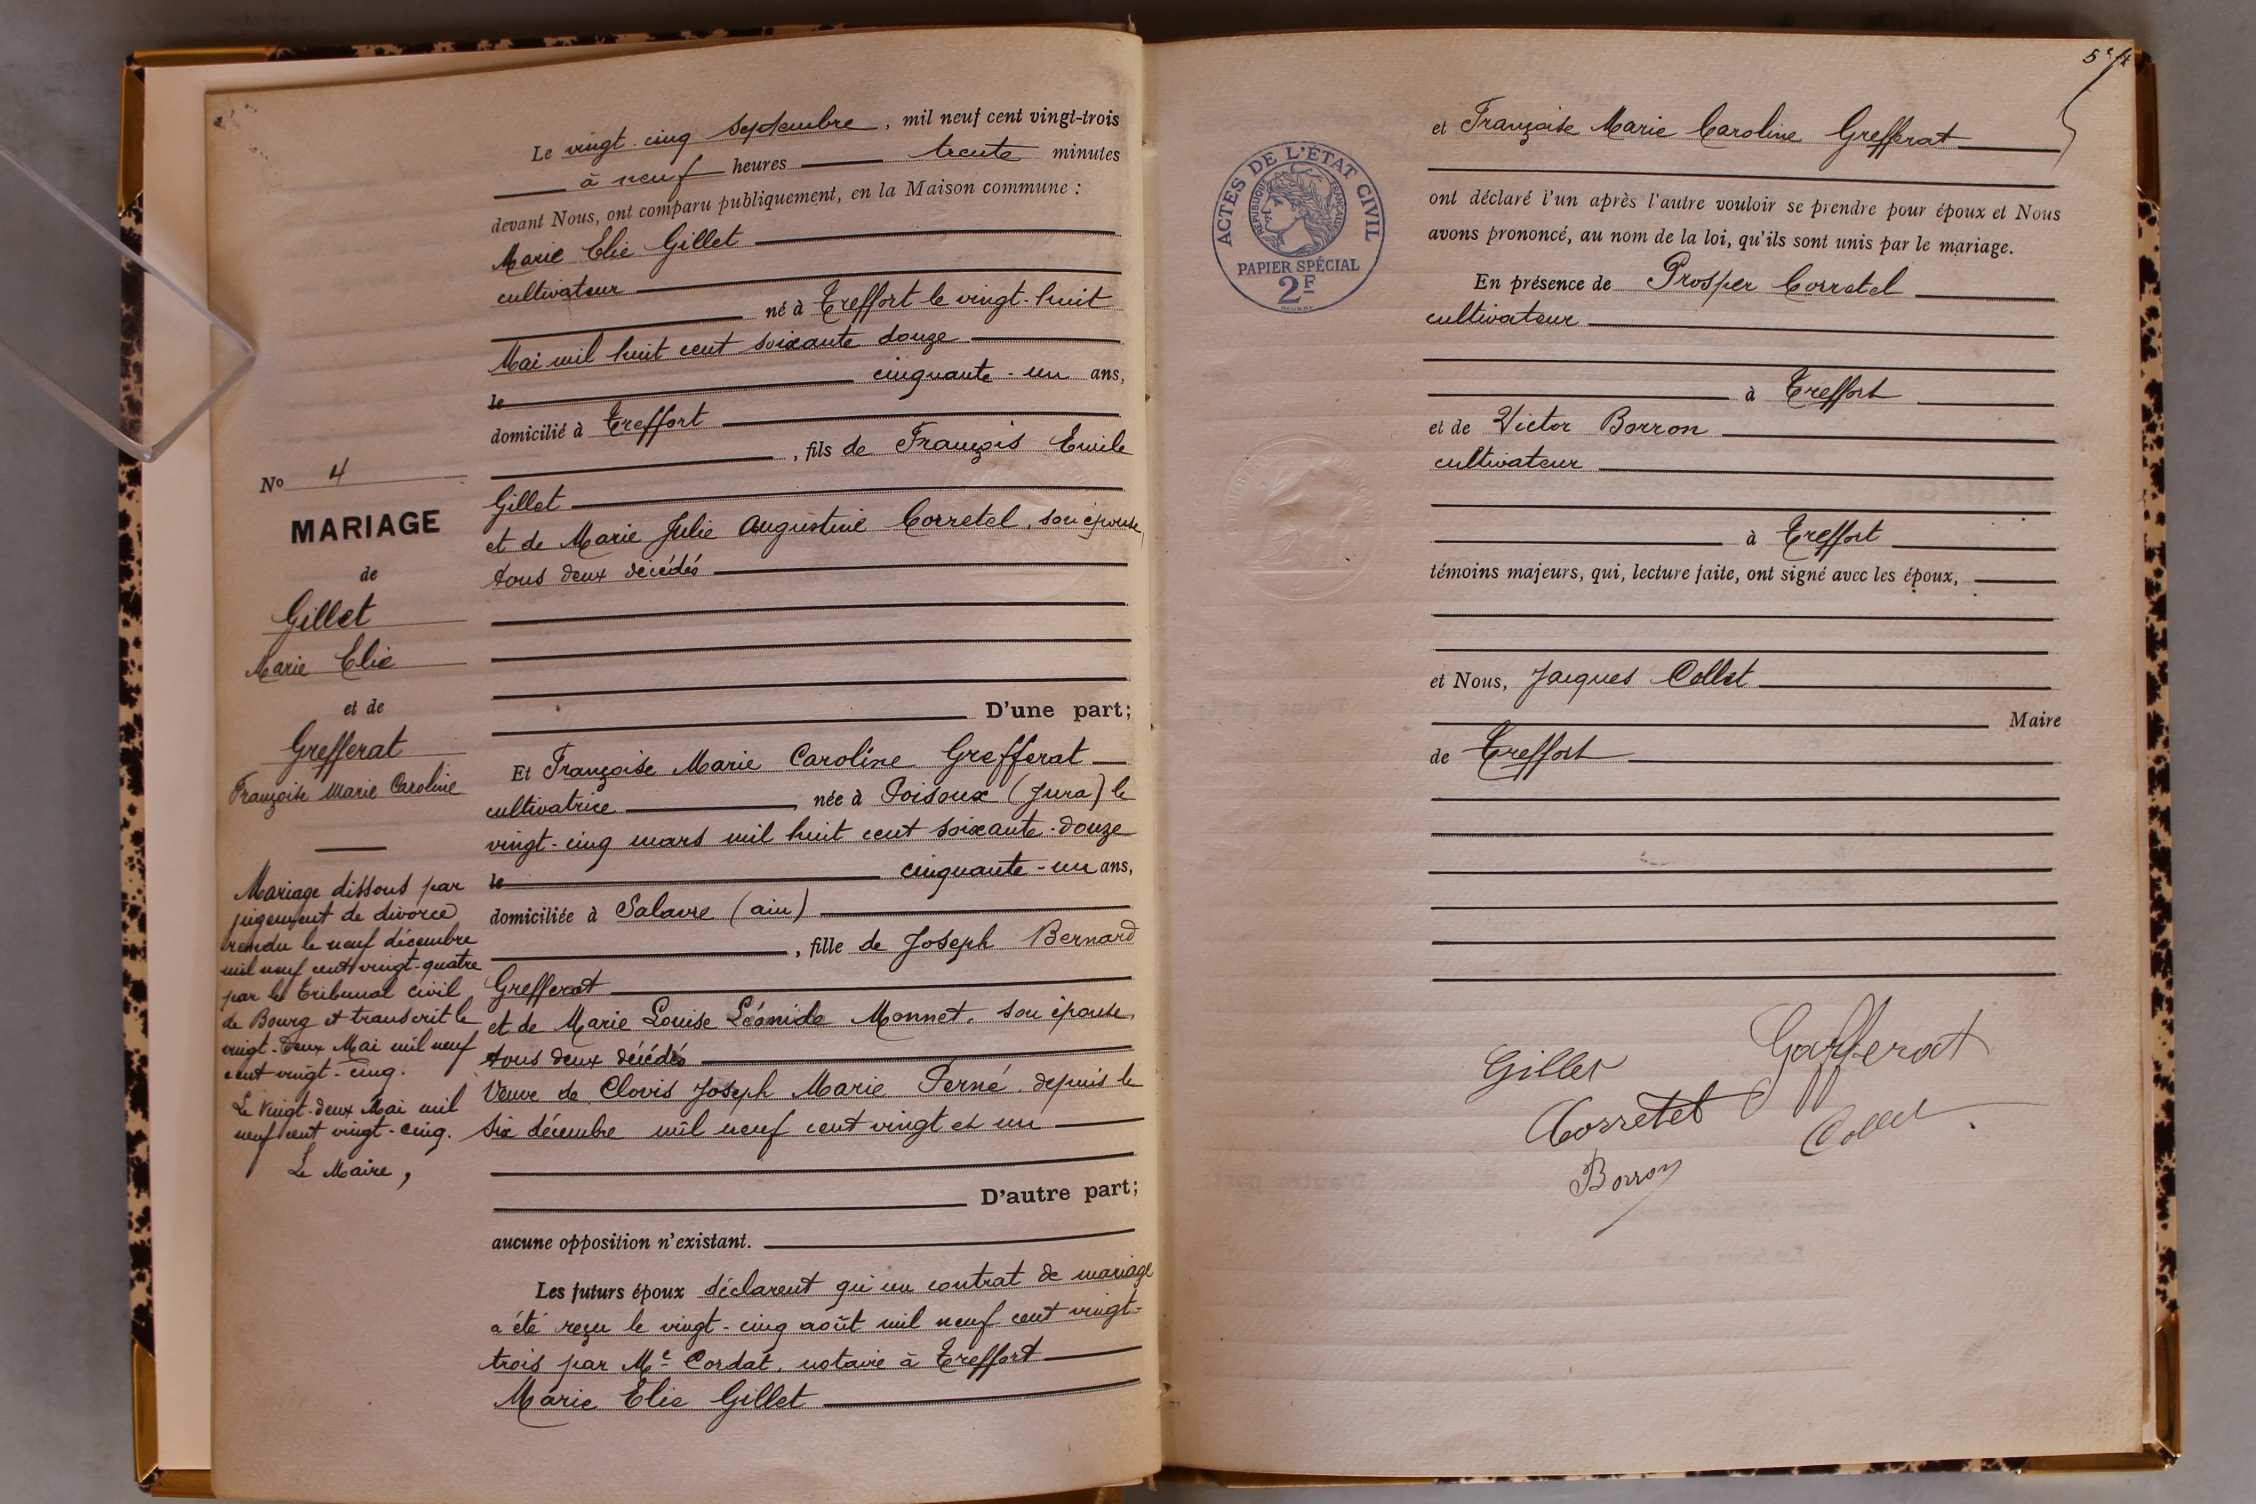 Le vingt-cinq Septembre, mil neuf cent vingt-trois
à neuf heures trente minutes
devant Nous, ont comparu publiquement, en la Maison commune :
Marie Elie Gillet
cultivateur
né à Treffort le vingt-huit
Mai mil huit cent soixante douze
le cinquante-un ans,
domicilié à Treffort
, fils de François Emile
Gillet
et de Marie Julie Augustine Corretel, son épouse,
tous deux décédés
D'une part;
Et Françoise Marie Caroline Grefferat
cultivatrice née à Poisoux (Jura) le
vingt-cinq mars mil huit cent soixante-douze
le cinquante-un ans,
domiciliée à Salavre (ain)
, fille de Joseph Bernard
Grefferat
et de Marie Louise Léonide Monnet, son épouse,
tous deux décédés
Veuve de Clovis Joseph Marie Perné, depuis le
six décembre mil neuf cent vingt et un
D'autre part;
aucune opposition n'existant.
Les futurs époux déclarent qu'un contrat de mariage
a été reçu le vingt-cinq août mil neuf cent vingt-
trois par Me Cordat, notaire à Treffort
Marie Elie Gillet
No 4
MARIAGE
de
Gillet
Marie Elie
et de
Grefferat
Françoise Marie Caroline
Mariage dissous par
jugement de divorce
rendu le neuf décembre
mil neuf cent vingt-quatre
par le Tribunal civil
de Bourg et transcrit le
vingt-deux Mai mil neuf
cent vingt-cinq.
Le vingt-deux Mai mil
neuf cent vingt-cinq.
Le Maire,
ACTES DE L'ÉTAT CIVIL
RÉPUBLIQUE FRANÇAISE
PAPIER SPÉCIAL
2F
et Françoise Marie Caroline Grefferat
ont déclaré l'un après l'autre vouloir se prendre pour époux et Nous
avons prononcé, au nom de la loi, qu'ils sont unis par le mariage.
En présence de Prosper Corretel
cultivateur
à Treffort
et de Victor Borron
cultivateur
à Treffort
témoins majeurs, qui, lecture faite, ont signé avec les époux,
et Nous, Jacques Collet
Maire
de Treffort
Gillet Grefferat
Corretel
Collet
Borron